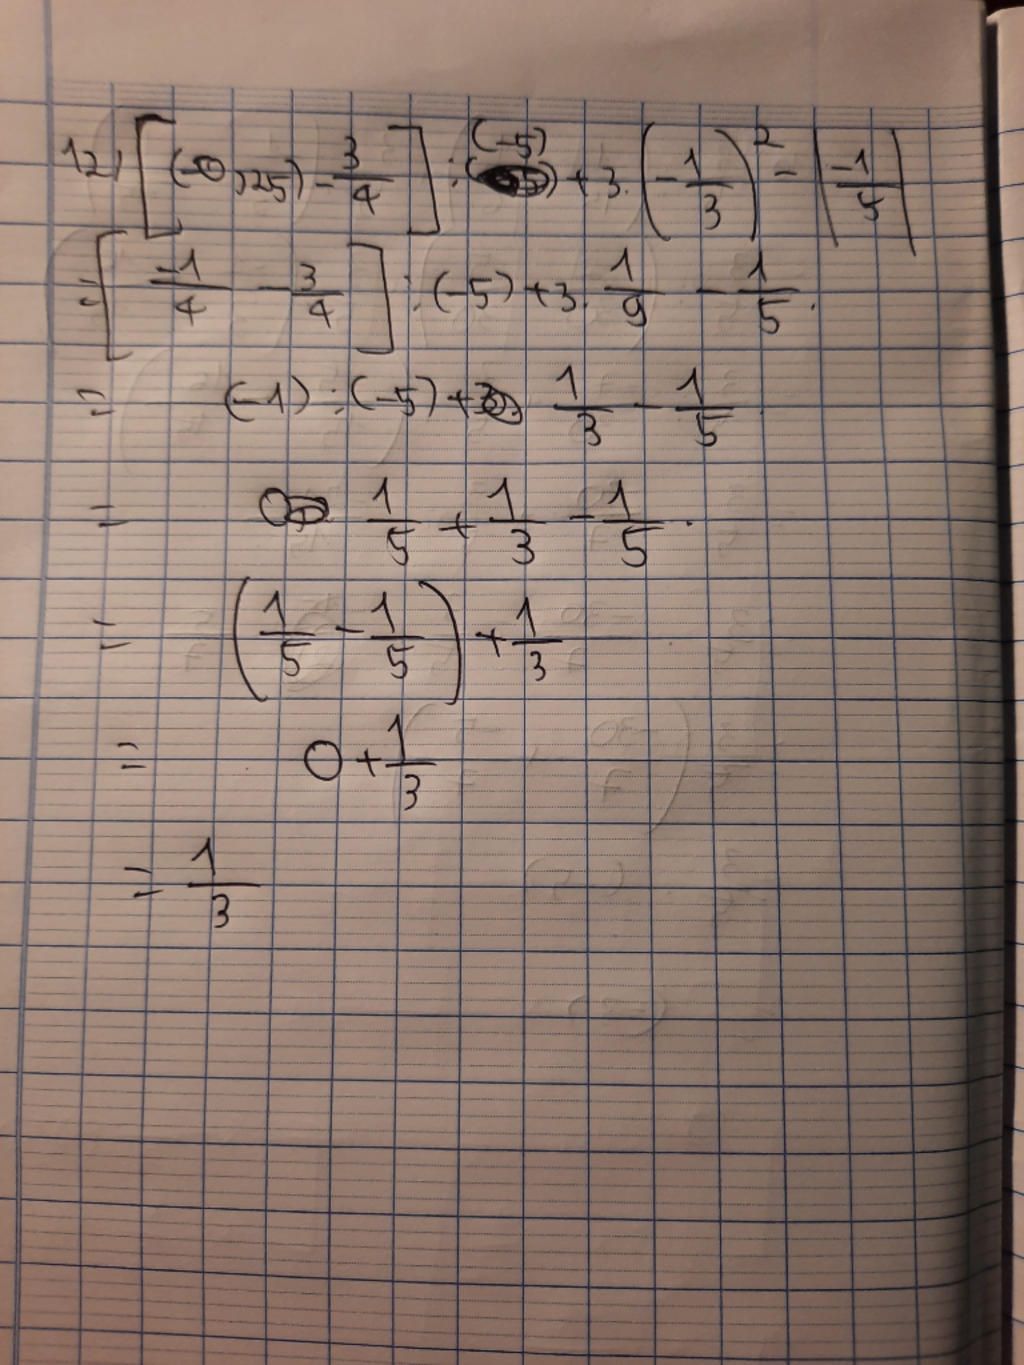 12) [(-0,25) - 3/4] : (-5) + 3. (-1/3)² - |-1/5|
= [-1/4 - 3/4] : (-5) + 3. 1/9 - 1/5.
= (-1) : (-5) + 1/3 - 1/5
= 1/5 + 1/3 - 1/5.
= (1/5 - 1/5) + 1/3
= 0 + 1/3
= 1/3